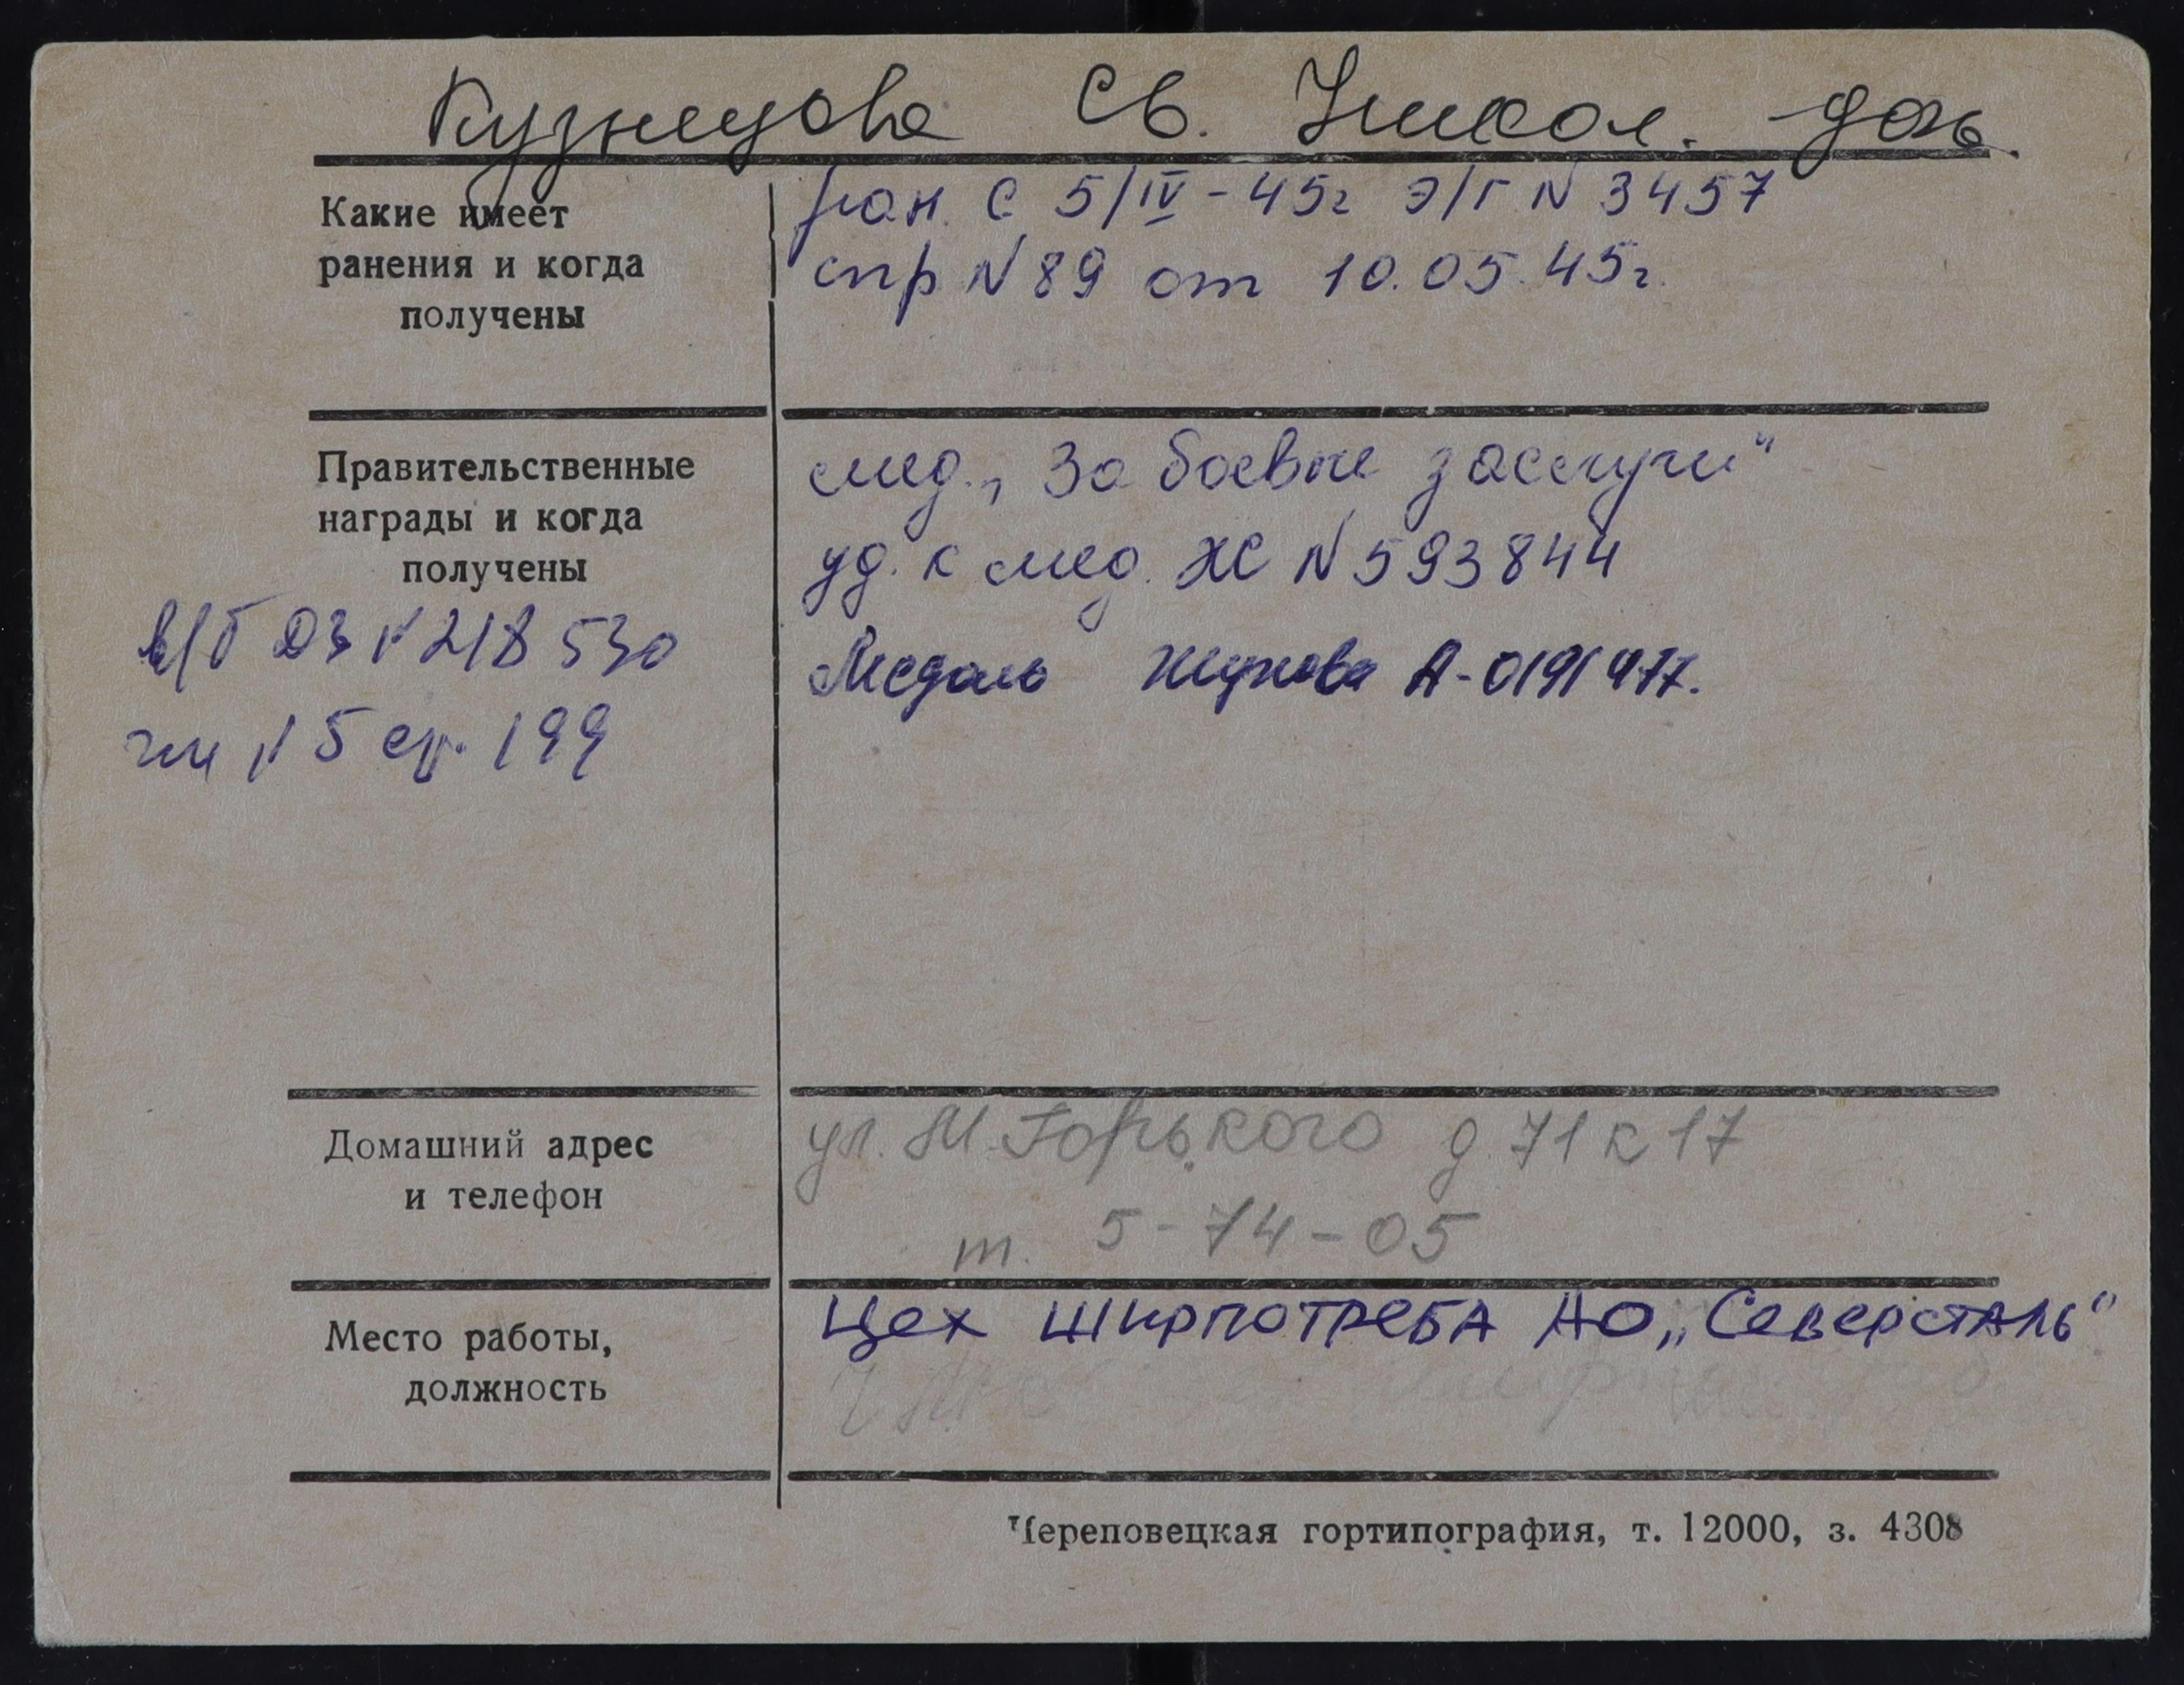 Кузнецова Св. Никол. - дочь.
Какие имеет
ранения и когда
получены
ран. с 5/IV-45г Э/Г N 3457
спр N 89 от 10.05.45г.
Правительственные
награды и когда
получены
мед. „За боевые заслуги"
уд. к мед. ЖС N 593844
Медаль Жукова А-0191477.
в/б ДЗ N 218530
N 5 ср. 199
Домашний адрес
и телефон
ул. М. Горького д. 71 к 17
т. 5-74-05
Место работы,
должность
Цех ширпотреба АО „Северсталь"
Череповецкая гортипография, т. 12000, з. 4308